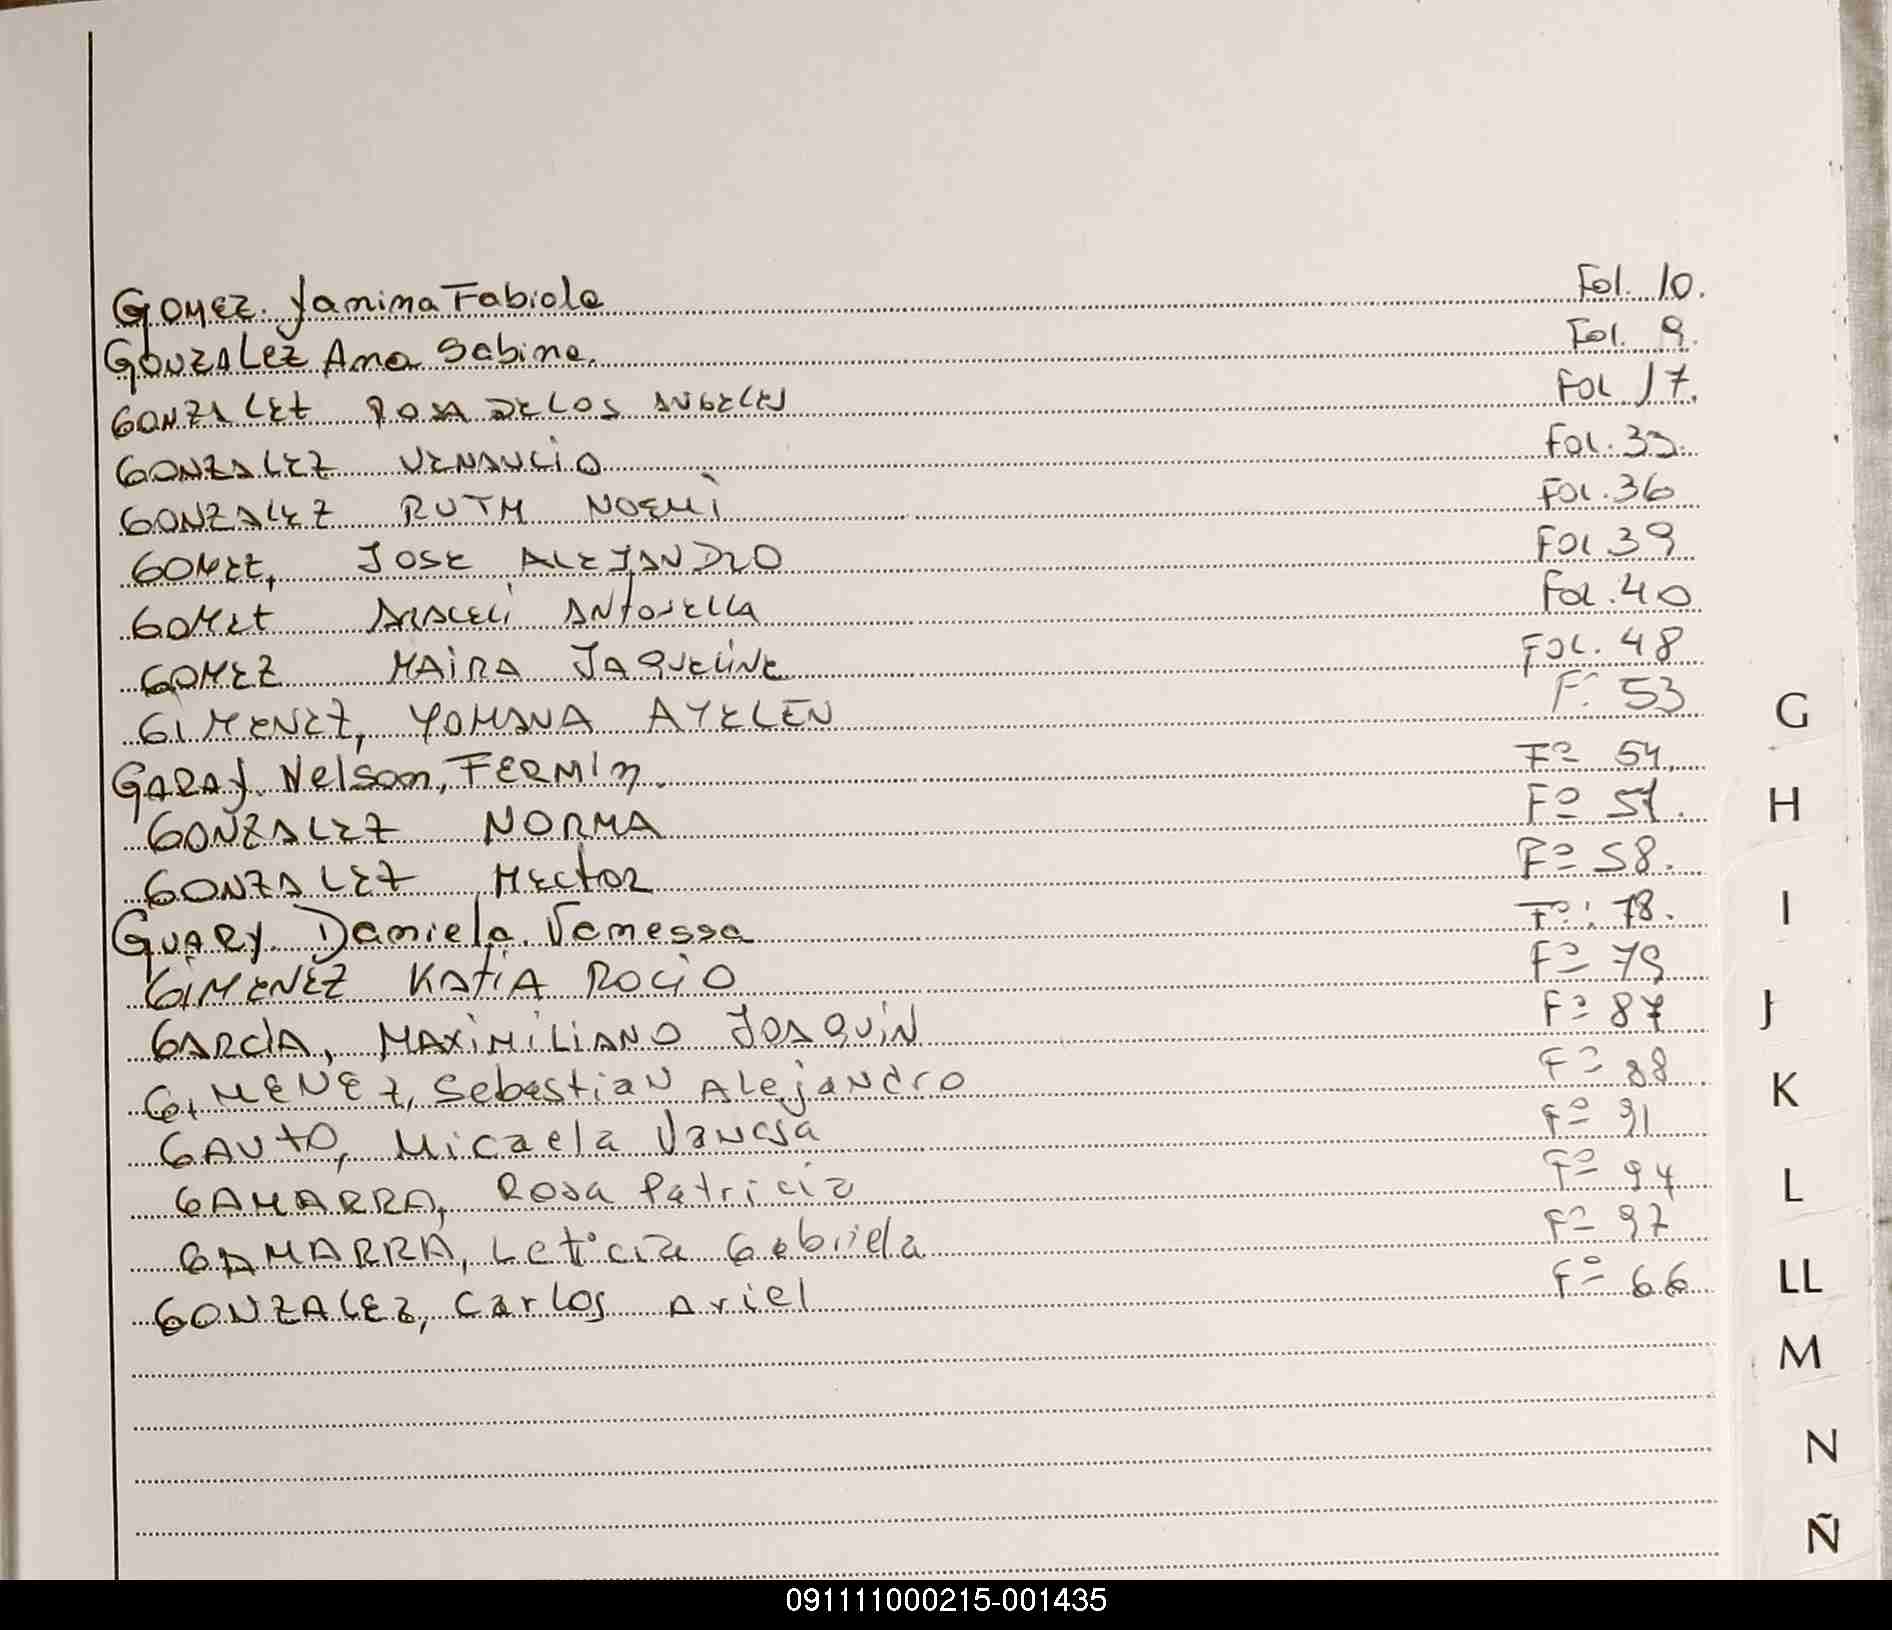 GOMEZ. Yanina Fabiola Fol. 10.
GONZALEZ Ana Sabina. Fol. 9.
GONZALEZ ROSA DE LOS ANGELES FOL 17.
GONZALEZ VENANCIO FOL. 33.
GONZALEZ RUTH NOEMI FOL. 36
GOMEZ, JOSE ALEJANDRO FOL 39
GOMEZ ARACELI ANTONELLA FOL. 40
GOMEZ MAIRA JAQUELINE FOL. 48
GIMENEZ, YOHANA AYELEN F. 53
GARAY. Nelson, FERMIN. Fº 54.
GONZALEZ NORMA Fº 57.
GONZALEZ HECTOR Fº 58.
GUARY. Daniela. Vanessa Fº: 78.
GIMENEZ KATIA ROCIO Fº 79
GARCIA, MAXIMILIANO JOAQUIN Fº 87
GIMENEZ, Sebastian Alejandro Fº 88
GAUTO, Micaela Vanesa Fº 91
GAMARRA, Rosa Patricia Fº 94
GAMARRA, Leticia Gabriela Fº 97
GONZALEZ, Carlos Ariel Fº 66
G
H
I
J
K
L
LL
M
N
Ñ
091111000215-001435